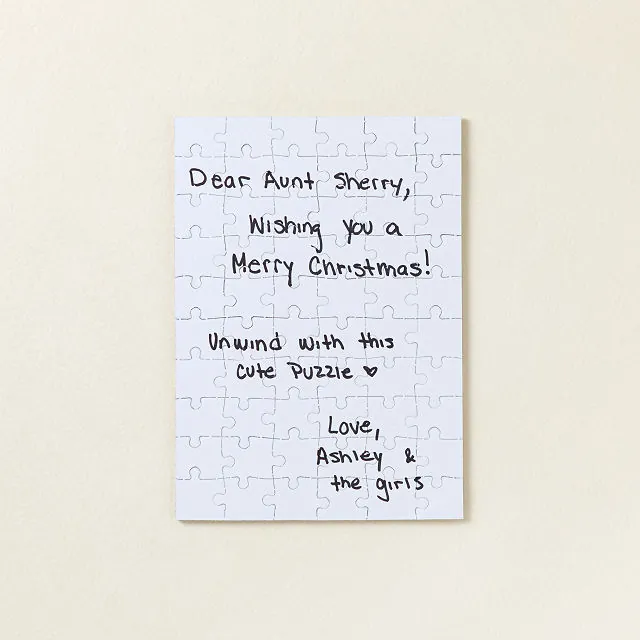 Dear Aunt Sherry,
Wishing you a
Merry Christmas!
Unwind with this
cute Puzzle ♥
Love,
Ashley &
the girls